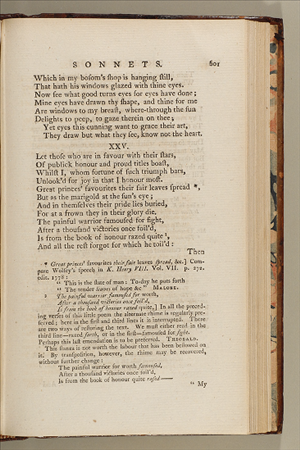 SONNETS. 601
Which in my bosom's shop is hanging still,
That hath his windows glazed with thine eyes.
Now see what good turns eyes for eyes have done;
Mine eyes have drawn thy shape, and thine for me
Are windows to my breast, where-through the sun
Delights to peep, to gaze therein on thee;
Yet eyes this cunning want to grace their art,
They draw but what they see, know not the heart.
XXV.
Let those who are in favour with their stars,
Of publick honour and proud titles boast,
Whilst I, whom fortune of such triumph bars,
Unlook'd for joy in that I honour most.
Great princes' favourites their fair leaves spread *,
But as the marigold at the sun's eye;
And in themselves their pride lies buried,
For at a frown they in their glory die.
The painful warrior famoused for fight,
After a thousand victories once foil'd,
Is from the book of honour razed quite ³,
And all the rest forgot for which he toil'd:
Then
* Great princes' favourites their fair leaves spread, &c.] Com-
pare Wolsey's speech in K. Henry VIII. Vol. VII. p. 272.
edit. 1778:
"This is the state of man: To-day he puts forth
"The tender leaves of hope &c." MALONE.
³ The painful warrior famoused for worth,
After a thousand victories once foil'd,
Is from the book of honour razed quite,] In all the preced-
ing verses of this little poem the alternate rhime is regularly pre-
served; here in the first and third lines it is interrupted. There
are two ways of restoring the text. We must either read in the
third line—razed forth, or in the first—famoused for fight.
Perhaps this last emendation is to be preferred. THEOBALD.
This stanza is not worth the labour that has been bestowed on
it. By transposition, however, the rhime may be recovered,
without further change:
The painful warrior for worth famoused,
After a thousand victories once foil'd,
Is from the book of honour quite rased—
" My